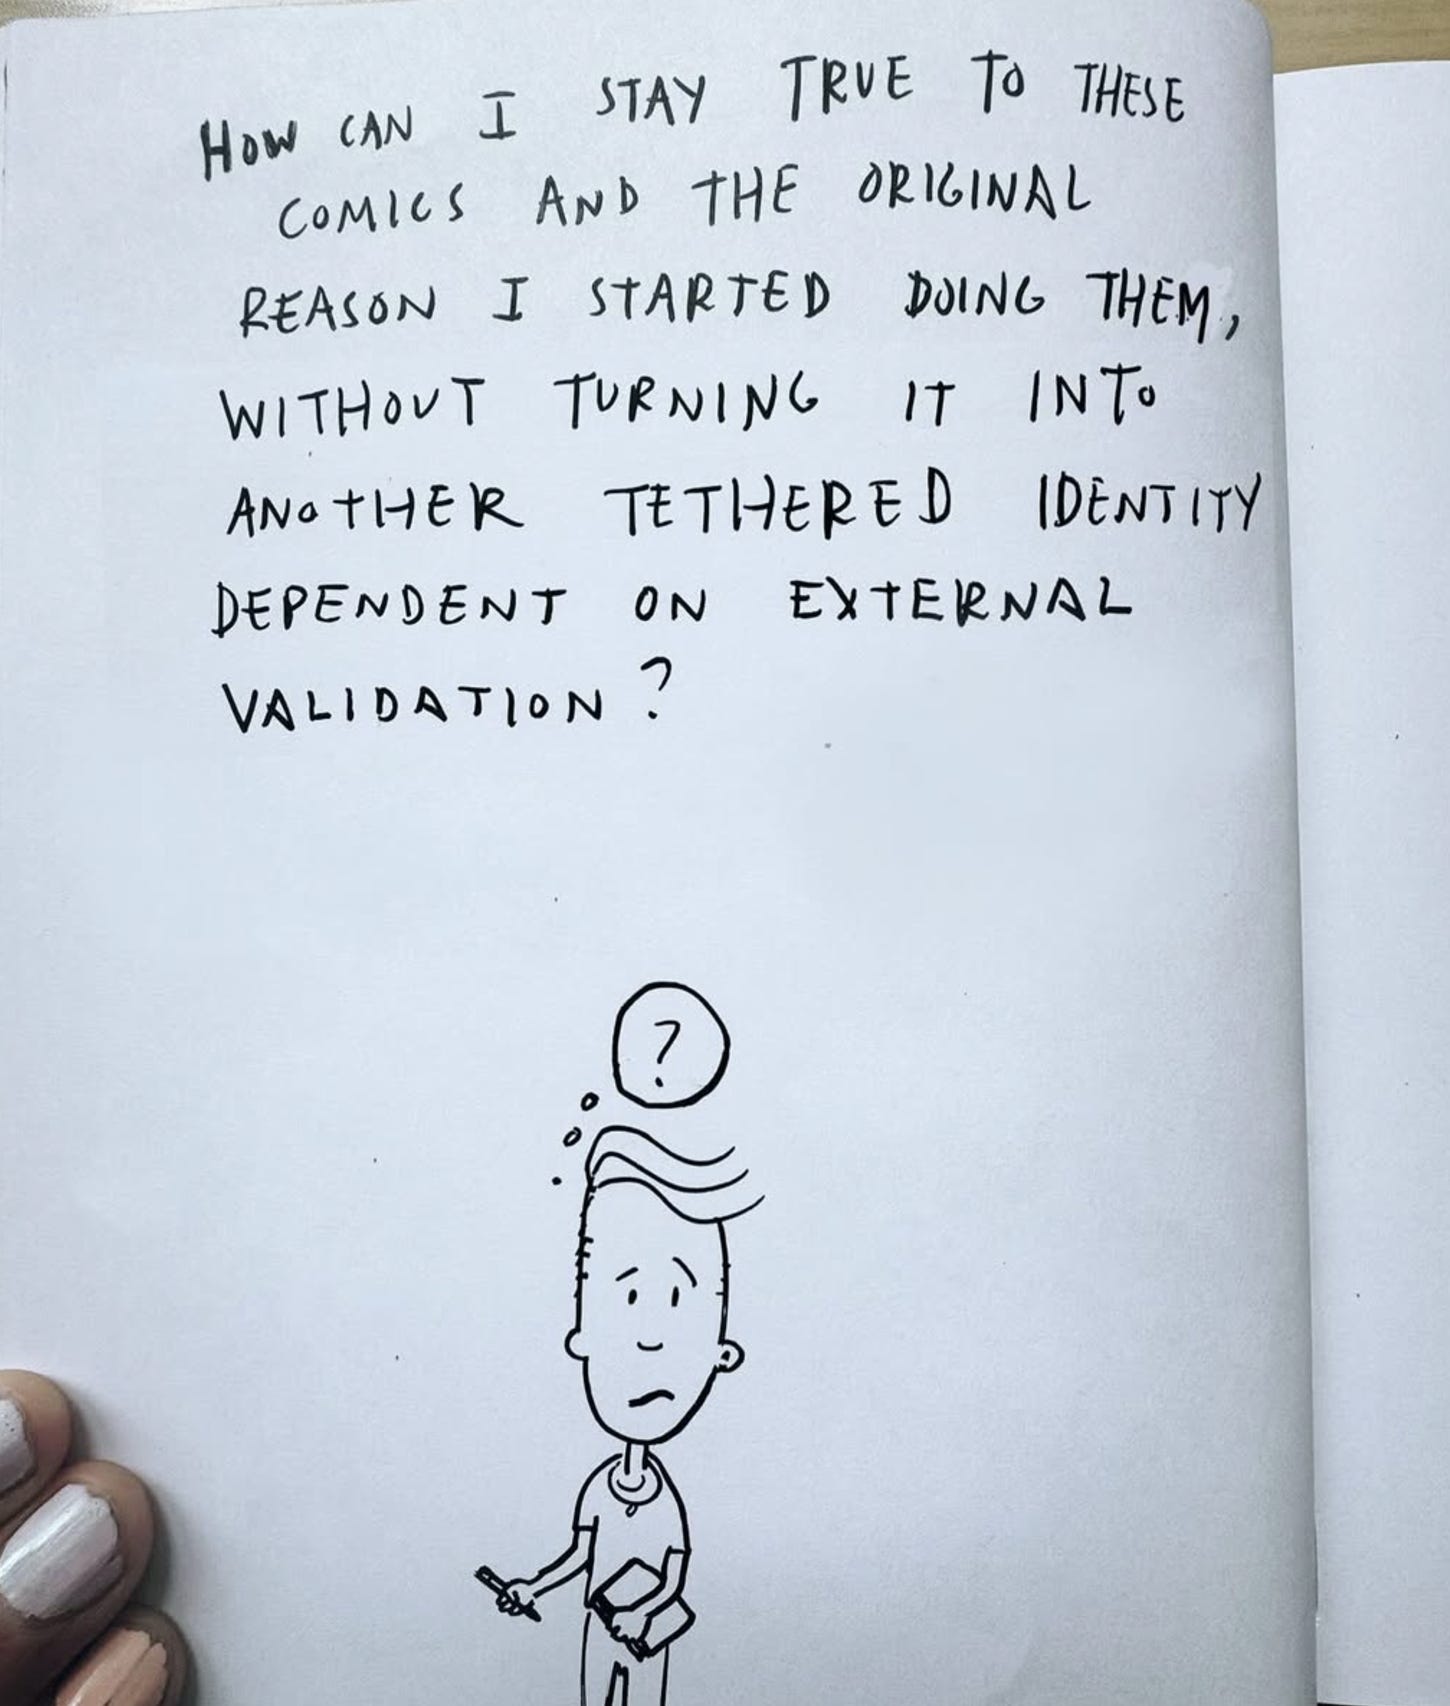 HOW CAN I STAY TRUE TO THESE
COMICS AND THE ORIGINAL
REASON I STARTED DOING THEM,
WITHOUT TURNING IT INTO
ANOTHER TETHERED IDENTITY
DEPENDENT ON EXTERNAL
VALIDATION?
?